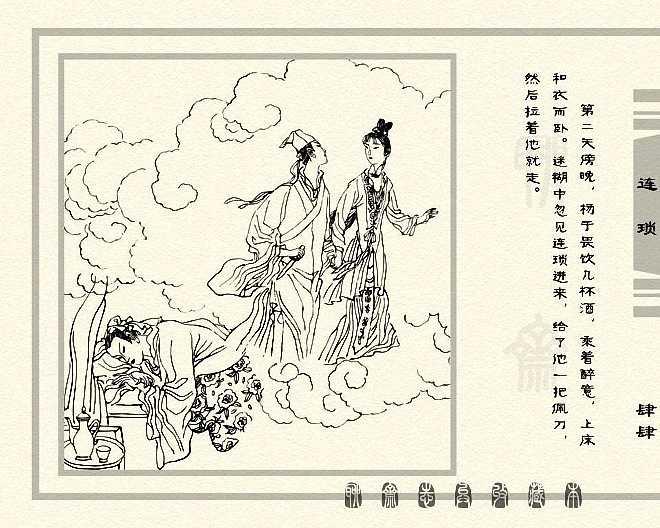 第二天傍晚，杨于畏饮几杯酒，乘着醉意，上床
和衣而卧。迷糊中忽见连琐进来，给了他一把佩刀，
然后拉着他就走。
连琐
肆肆
聊斋志异收藏本